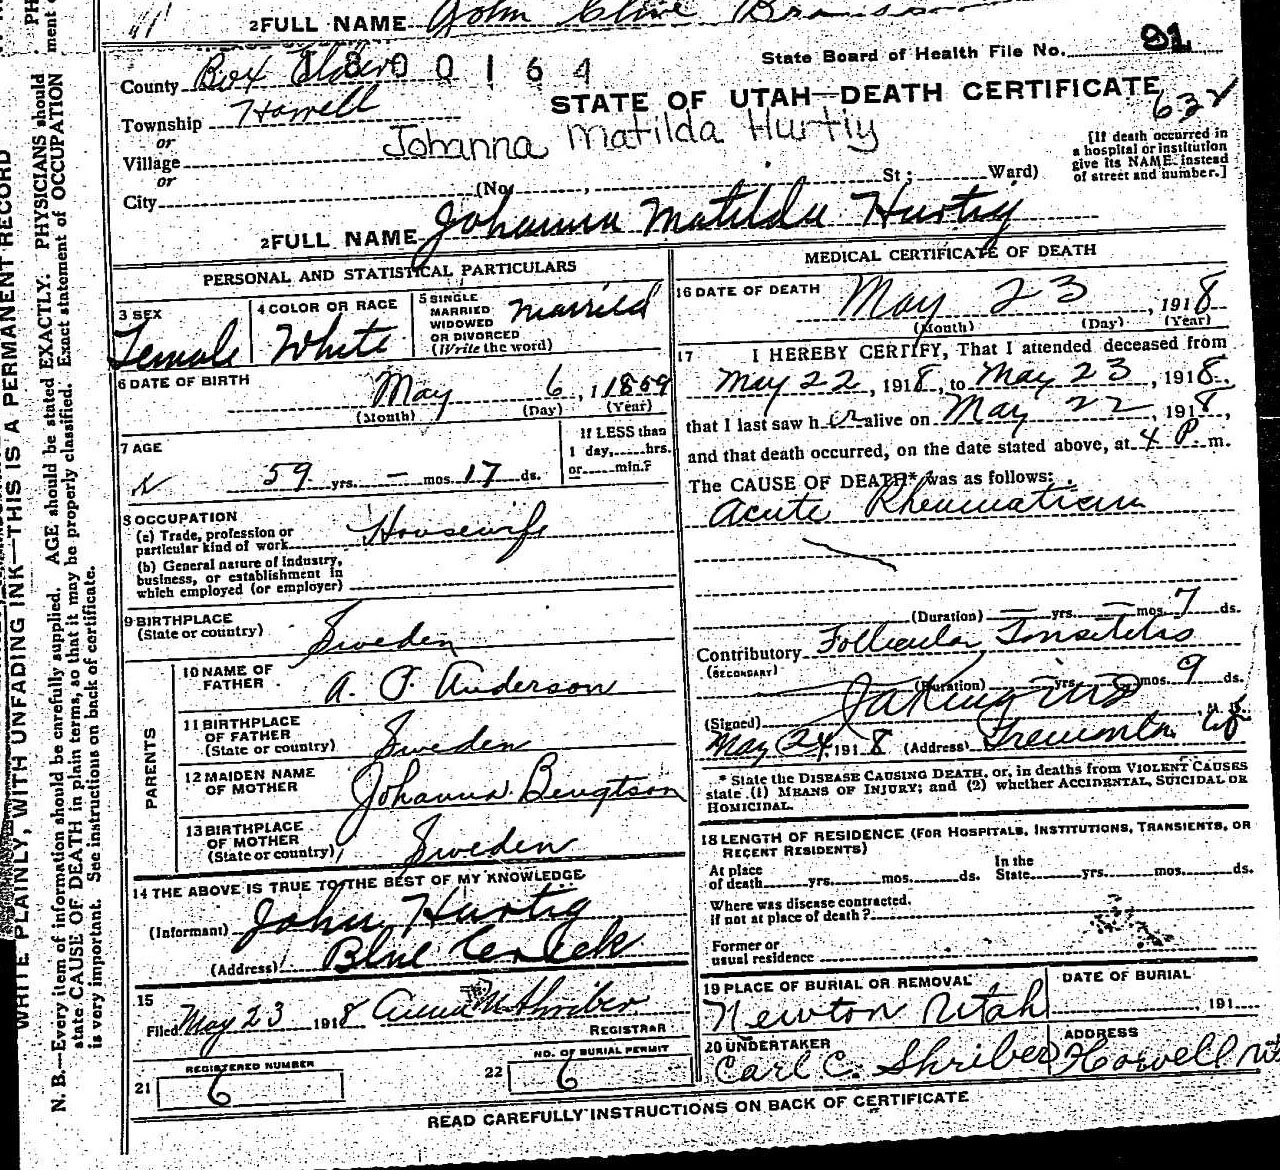 2 FULL NAME John Clive
State Board of Health File No. 91
County Box Elder 1800164
STATE OF UTAH—DEATH CERTIFICATE
632
Township Howell
or
Johanna Matilda Hurtiy
Village
or
City
(No. , St; Ward)
[If death occurred in
a hospital or institution
give its NAME instead
of street and number.]
2 FULL NAME Johanna Matilda Hurtig
PERSONAL AND STATISTICAL PARTICULARS
3 SEX
Female
4 COLOR OR RACE
White
5 SINGLE
MARRIED
WIDOWED
OR DIVORCED
(Write the word)
Married
6 DATE OF BIRTH
May 6, 1859
(Month) (Day) (Year)
7 AGE
59 yrs. — mos. 17 ds.
If LESS than
1 day, hrs.
or min.?
8 OCCUPATION
(a) Trade, profession or
particular kind of work Housewife
(b) General nature of industry,
business, or establishment in
which employed (or employer)
9 BIRTHPLACE
(State or country) Sweden
PARENTS
10 NAME OF
FATHER A. P. Anderson
11 BIRTHPLACE
OF FATHER
(State or country) Sweden
12 MAIDEN NAME
OF MOTHER Johanna Bengtson
13 BIRTHPLACE
OF MOTHER
(State or country) Sweden
14 THE ABOVE IS TRUE TO THE BEST OF MY KNOWLEDGE
(Informant) John Hurtig
(Address) Blue Creek
15
Filed May 23 1918 Anna M Shriber
REGISTRAR
21 REGISTERED NUMBER
6
22 NO. OF BURIAL PERMIT
6
MEDICAL CERTIFICATE OF DEATH
16 DATE OF DEATH
May 23, 1918
(Month) (Day) (Year)
17 I HEREBY CERTIFY, That I attended deceased from
May 22, 1918, to May 23, 1918.
that I last saw her alive on May 22, 1918,
and that death occurred, on the date stated above, at 4 P. m.
The CAUSE OF DEATH* was as follows:
Acute Rheumatism
(Duration) — yrs. — mos. 7 ds.
Contributory Follicular Tonsilitis
(SECONDARY)
(Duration) — yrs. mos. 9 ds.
(Signed) M. D.
May 24, 1918 (Address) Tremonton
* State the DISEASE CAUSING DEATH, or, in deaths from VIOLENT CAUSES
state (1) MEANS OF INJURY; and (2) whether ACCIDENTAL, SUICIDAL OR
HOMICIDAL.
18 LENGTH OF RESIDENCE (FOR HOSPITALS, INSTITUTIONS, TRANSIENTS, OR
RECENT RESIDENTS)
At place
of death yrs. mos. ds.
In the
State yrs. mos. ds.
Where was disease contracted,
if not at place of death?
Former or
usual residence
19 PLACE OF BURIAL OR REMOVAL
Newton Utah
DATE OF BURIAL
191
20 UNDERTAKER
Carl C. Shriber
ADDRESS
Howell Ut
READ CAREFULLY INSTRUCTIONS ON BACK OF CERTIFICATE
WRITE PLAINLY, WITH UNFADING INK—THIS IS A PERMANENT RECORD
N. B.—Every item of information should be carefully supplied. AGE should be stated EXACTLY. PHYSICIANS should
state CAUSE OF DEATH in plain terms, so that it may be properly classified. Exact statement of OCCUPATION
is very important. See instructions on back of certificate.